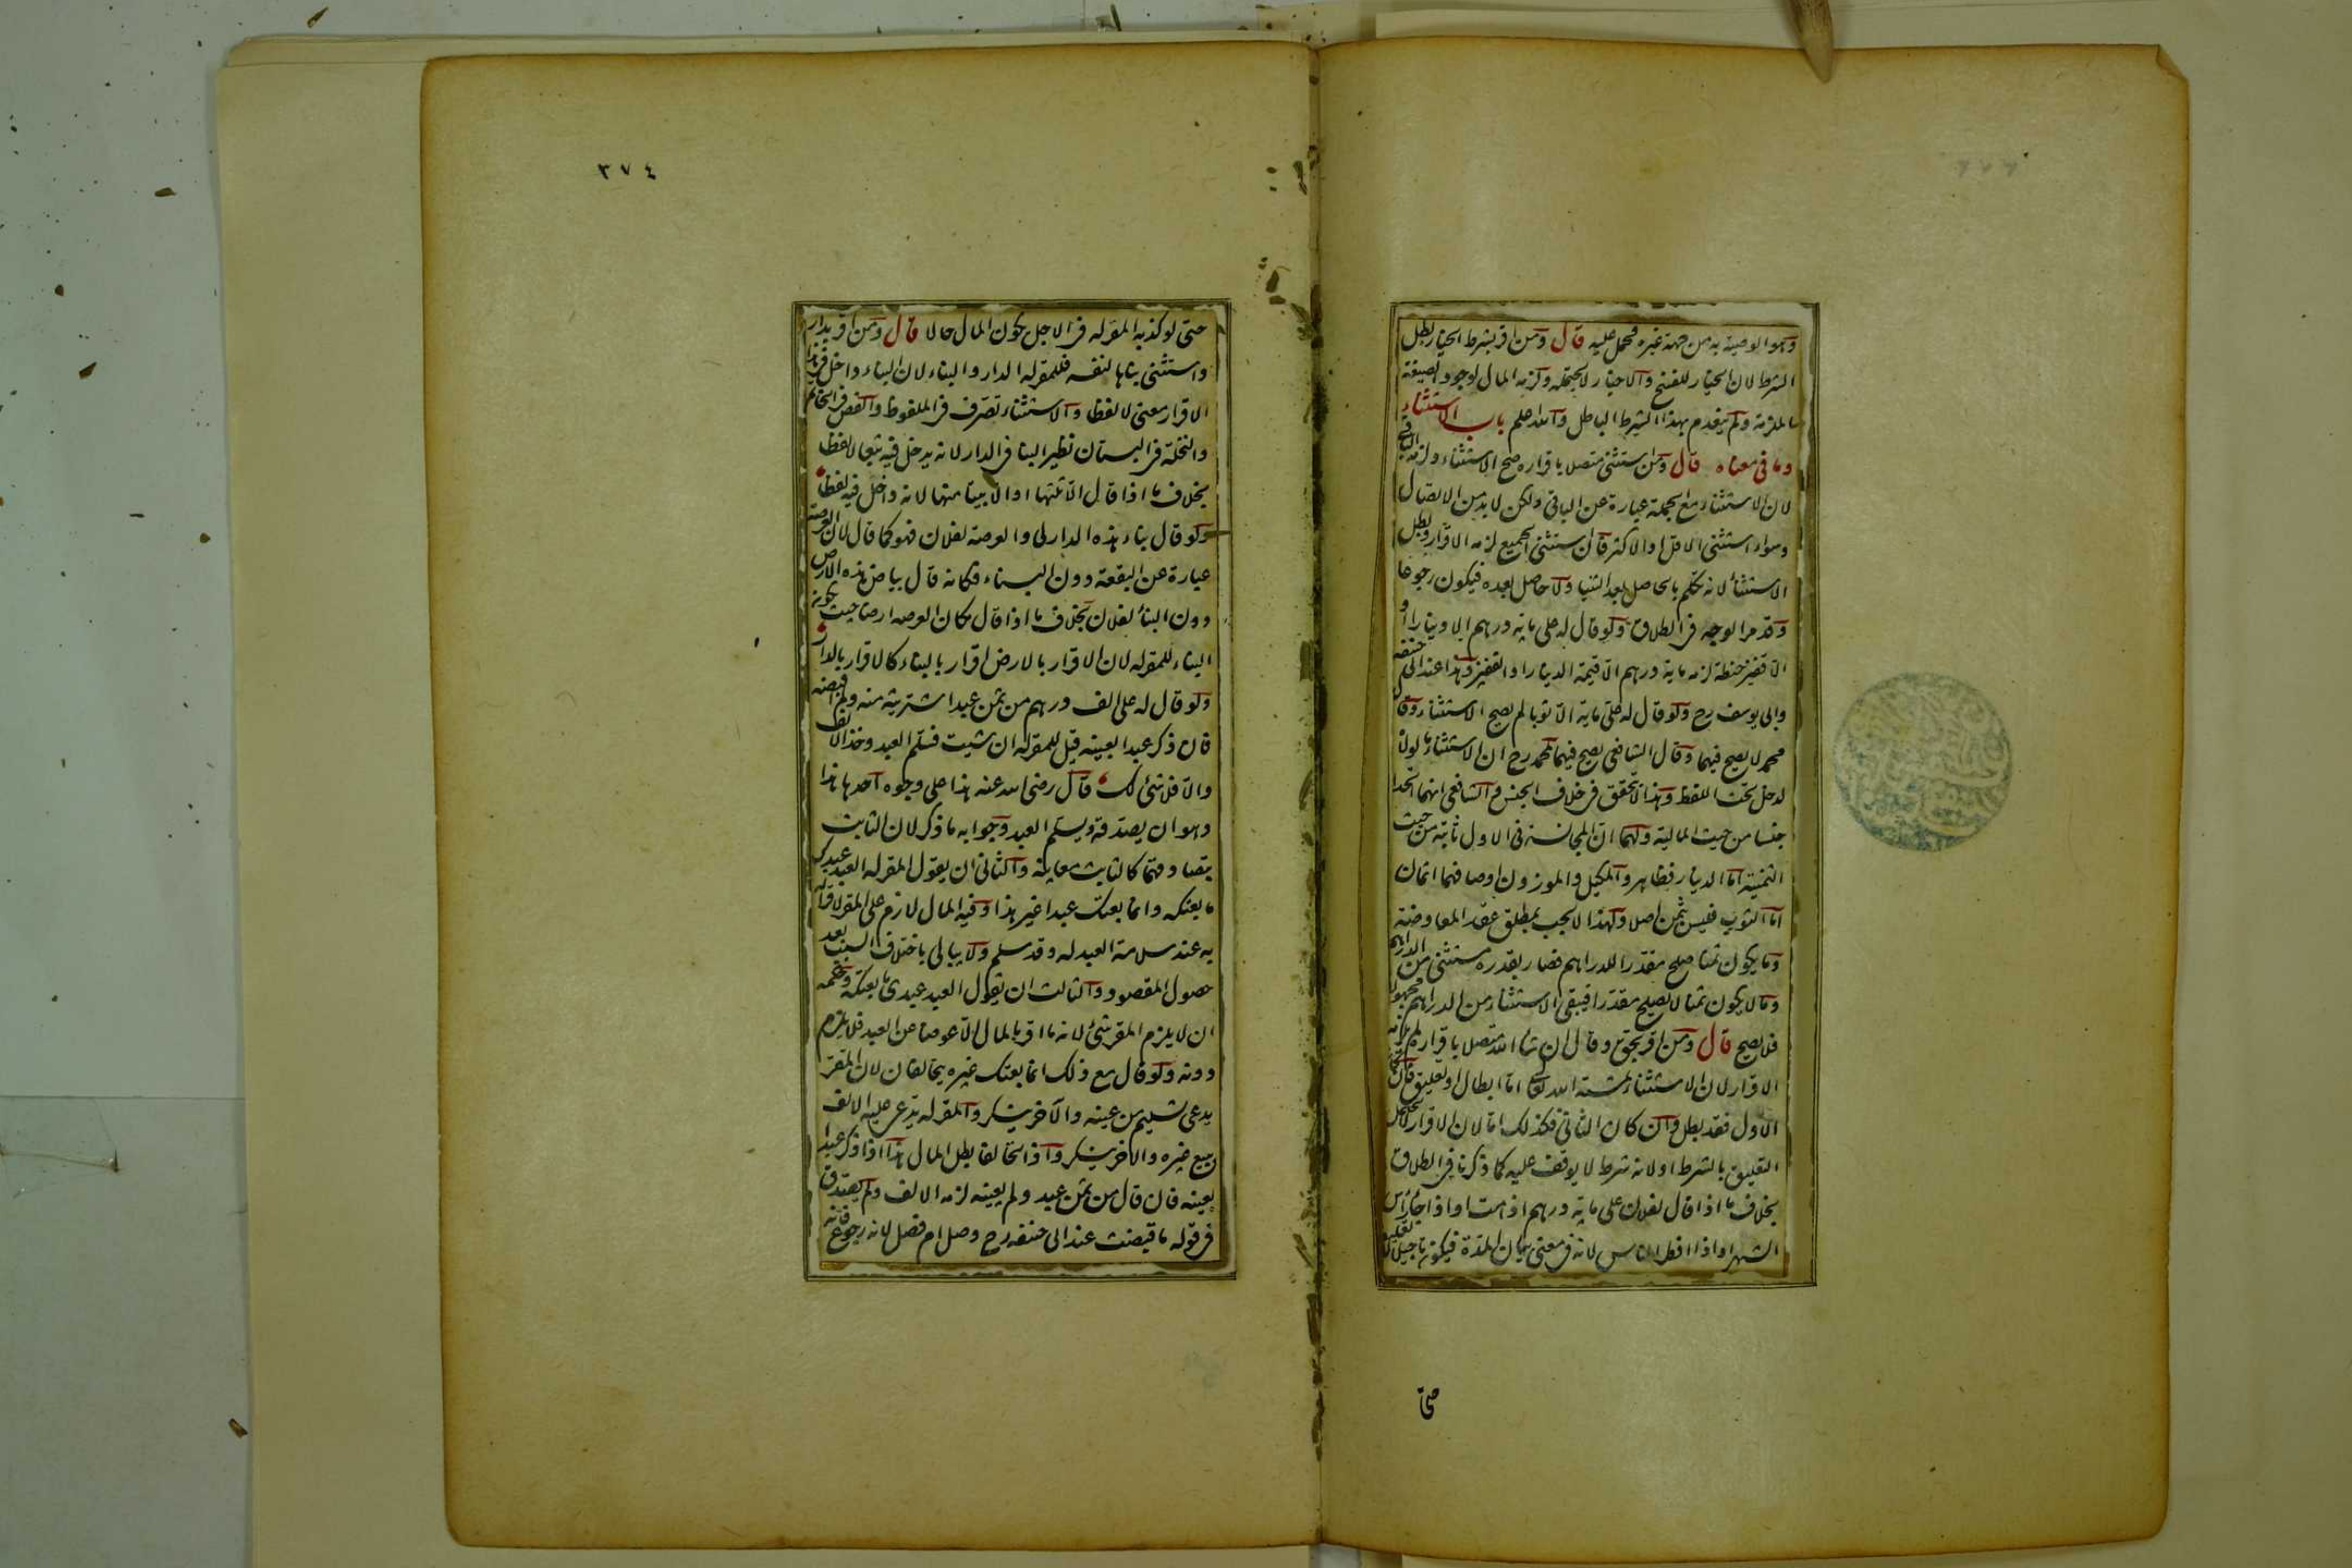 وهو الوصية به من جهة غيره فحمل عليه قال ومن اقر بشرط الخيار بطل
الشرط لان الخيار للفسخ والاخبار لا يحتمله ولزمه المال لوجود الصيغة
الملزمة ولم ينعدم بهذا الشرط الباطل والله اعلم باب الاستثناء
وما في معناه قال ومن استثنى متصلا باقراره صح الاستثناء ولزمه الباقي
لان الاستثناء مع الجملة عبارة عن الباقي ولكن لا بد من الاتصال
وسواء استثنى الاقل او الاكثر فان استثنى الجميع لزمه الاقرار وبطل
الاستثناء لانه تكلم بالحاصل بعد الثنيا ولا حاصل بعده فيكون رجوعا
وقد مر الوجه في الطلاق ولو قال له علي ماية درهم الا دينارا او
الا قفيز حنطة لزمه ماية درهم الا قيمة الدينار او القفيز وهذا عند ابي حنيفة
وابي يوسف رح ولو قال له علي ماية الا ثوبا لم يصح الاستثناء وقال
محمد لا يصح فيهما وقال الشافعي يصح فيهما لمحمد رح ان الاستثناء ما لولاه
لدخل تحت اللفظ وهذا لا يتحقق في خلاف الجنس والشافعي انهما اتحدا
جنسا من حيث المالية ولهما ان المجانسة في الاول ثابتة من حيث
الثمنية اما الدينار فظاهر والمكيل والموزون اوصافهما اثمان
اما الثوب فليس بثمن اصلا ولهذا لا يجب بمطلق عقد المعاوضة
وما يكون ثمنا صلح مقدرا للدراهم فصار بقدره مستثنى من الدراهم
وما لا يكون ثمنا لا يصلح مقدرا فيبقى الاستثناء من الدراهم مجهولا
فلا يصح قال ومن اقر بحق وقال ان شاء الله متصلا باقراره لم يلزمه
الاقرار لان الاستثناء بمشية الله تعالى اما ابطال او تعليق فان كان
الاول فقد بطل وان كان الثاني فكذلك اما لان الاقرار لا يحتمل
التعليق بالشرط او لانه شرط لا يوقف عليه كما ذكرنا في الطلاق
بخلاف ما اذا قال لفلان علي ماية درهم اذا مت او اذا جاء راس
الشهر او اذا افطر الناس لانه في معنى بيان المدة فيكون تاجيلا لا تعليقا
حتى
٣٧٤
حتى لو كذبه المقر له في الاجل يكون المال حالا قال ومن اقر بدار
واستثنى بناها لنفسه فللمقر له الدار والبناء لان البناء داخل في هذا
الاقرار معنى لا لفظا والاستثناء تصرف في الملفوظ والفص في الخاتم
والنخلة في البستان نظير البنا في الدار لانه يدخل فيه تبعا لا لفظا
بخلاف ما اذا قال الا ثلثها او الا بيتا منها لانه داخل فيه لفظا
ولو قال بناء هذه الدار لي والعرصة لفلان فهو كما قال لان العرصة
عبارة عن البقعة دون البناء فكانه قال بياض هذه الارض
دون البناء لفلان بخلاف ما اذا قال مكان العرصه ارضا حيث يكون
البناء للمقر له لان الاقرار بالارض اقرار بالبناء كالاقرار بالدار
ولو قال له علي الف درهم من ثمن عبد اشتريته منه ولم اقبضه
فان ذكر عبدا بعينه قيل للمقر له ان شيت فسلم العبد وخذ الالف
والا فلا شئ لك قال رضي الله عنه هذا على وجوه احدها هذا
وهو ان يصدقه ويسلم العبد وجوابه ما ذكر لان الثابت
بتصادقهما كالثابت معاينة والثاني ان يقول المقر له العبد عبدك
ما بعتكه وانما بعتك عبدا غير هذا وفيه المال لازم على المقر لاقراره
به عند سلامة العبد له وقد سلم ولا يبالي باختلاف السبب بعد
حصول المقصود والثالث ان يقول العبد عبدي ما بعتكه وحكمه
ان لا يلزم المقر شئ لانه ما اقر بالمال الا عوضا عن العبد فلا يلزمه
دونه ولو قال مع ذلك انما بعتك غيره يتحالفان لان المقر
يدعي تسليم من عينه والآخر ينكر والمقر له يدعي عليه الالف
ببيع غيره والآخر ينكر واذا تحالفا بطل المال هذا اذا ذكر عبدا
بعينه فان قال من ثمن عبد ولم يعينه لزمه الالف ولم يصدق
في قوله ما قبضت عند ابي حنيفه رح وصل ام فصل لانه رجوع فانه